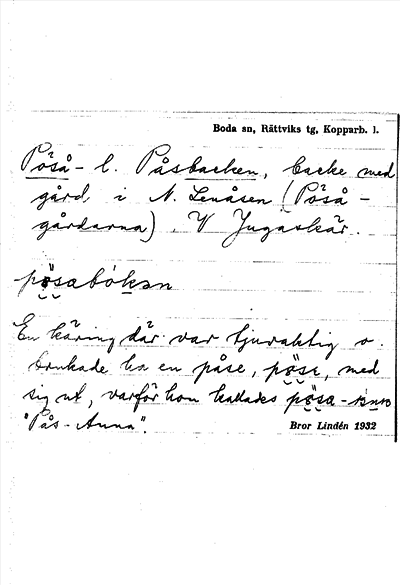 Boda sn, Rättviks tg, Kopparb. l.
Póså- l. Påsbacken, backe med
gård i N. Lenåsen (Póså-
gårdarna). V Jugaskär.
En käring där var tjuvaktig o.
brukade ha en påse, med
sig ut, varför hon kallades
"Pås-Anna".
Bror Lindén 1932